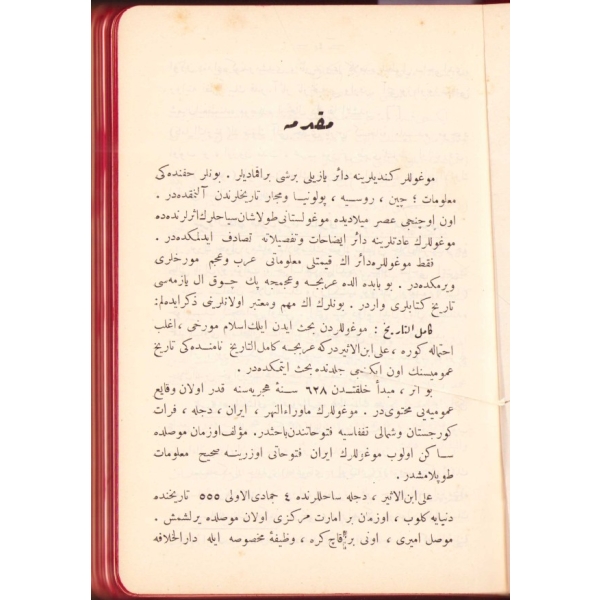 مقدمه
موغوللر كنديلرينه دائر يازيلى برشى براقماديلر . بونلر حقنده‌كى
معلومات ؛ چين ، روسيه ، پولونيا و مجار تاريخلرندن آلنمقده‌در .
اون اوچنجى عصر ميلاديده موغولستانى طولاشان سياحلرك اثرلرنده‌ده
موغوللرك عادتلرينه دائر ايضاحات و تفصيلاته تصادف ايدلمكده‌در .
فقط موغوللره‌دائر اك قيمتلى معلوماتى عرب و عجم مورخلرى
ويرمكده‌در . بو بابده الده عربجه و عجمجه پك چوق ال يازمه‌سى
تاريخ كتابلرى واردر . بونلرك اك مهم و معتبر اولانلرينى ذكرايده‌لم:
كامل التاريخ : موغوللردن بحث ايدن ايلك اسلام مورخى ، اغلب
احتماله كوره ، على ابن الاثيردركه عربجه كامل التاريخ نامنده‌كى تاريخ
عموميسنك اون ايكنجى جلدنده بحث ايتمكده‌در .
بو اثر ، مبدأ خلقتدن ٦٢٨ سنهٔ هجريه‌سنه قدر اولان وقايع
عموميه‌يى محتوى‌در . موغوللرك ماوراءالنهر ، ايران ، دجله ، فرات
كورجستان و شمالى قفقاسيه فتوحاتندن‌باحثدر . مؤلف اوزمان موصلده
ساكن اولوب موغوللرك ايران فتوحاتى اوزرينه صحيح معلومات
طوپلامشدر .
على ابن الاثير ، دجله ساحللرنده ٤ جمادى‌الاولى ٥٥٥ تاريخنده
دنيايه كلوب ، اوزمان بر امارت مركزى اولان موصلده يرلشمش .
موصل اميرى ، اونى بر قاچ كره ، وظيفهٔ مخصوصه ايله دارالخلافه